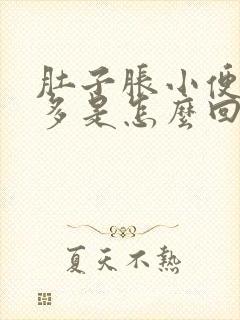 肚子脹小便
多是怎麼回
夏天不熱